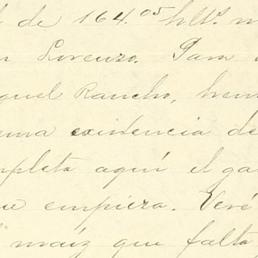 de 164.05 hlts. m
n Lorenzo. Para
quel Rancho, hem
una existencia de
mpleta aquí el ga
ue empieza. Veré
maíz que falta